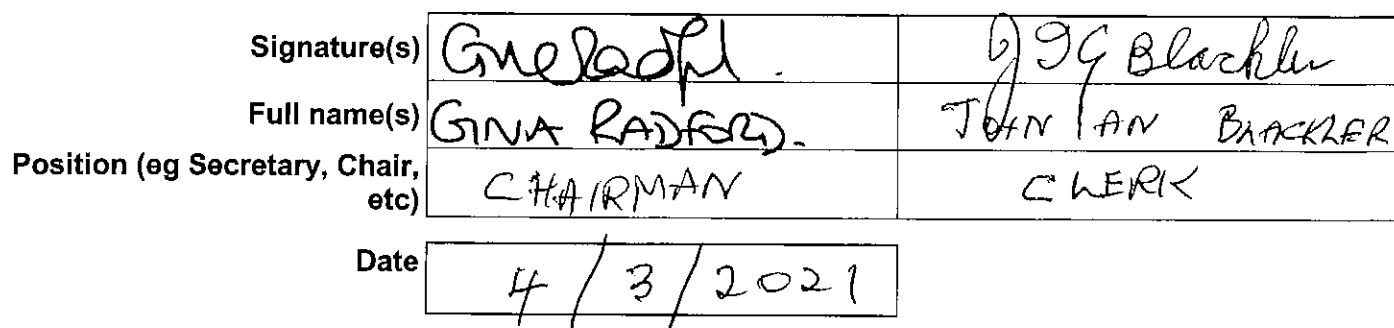 Signature(s) J I G Blackler
Full name(s) GINA RADFORD. JOHN IAN BLACKLER
Position (eg Secretary, Chair,
etc) CHAIRMAN CLERK
Date 4/3/2021